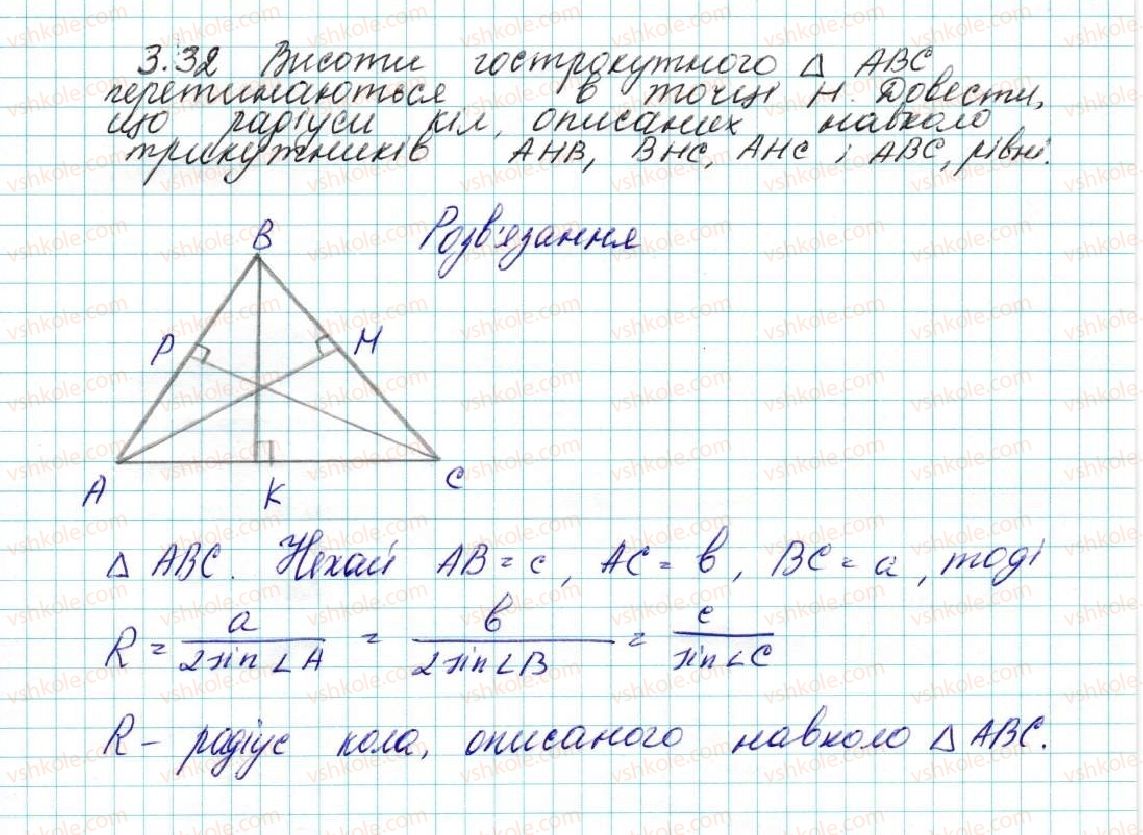 3.32 Висоти гострокутного △ ABC
перетинаються в точці H. Довести,
що радіуси кіл, описаних навколо
трикутників AHB, BHC, AHC і ABC, рівні.
Розв'язання
B
P
M
A
K
C
△ ABC. Нехай AB = c, AC = b, BC = a, тоді
R = a / 2 sin ∠A = b / 2 sin ∠B = c / sin ∠C
R – радіус кола, описаного навколо △ ABC.